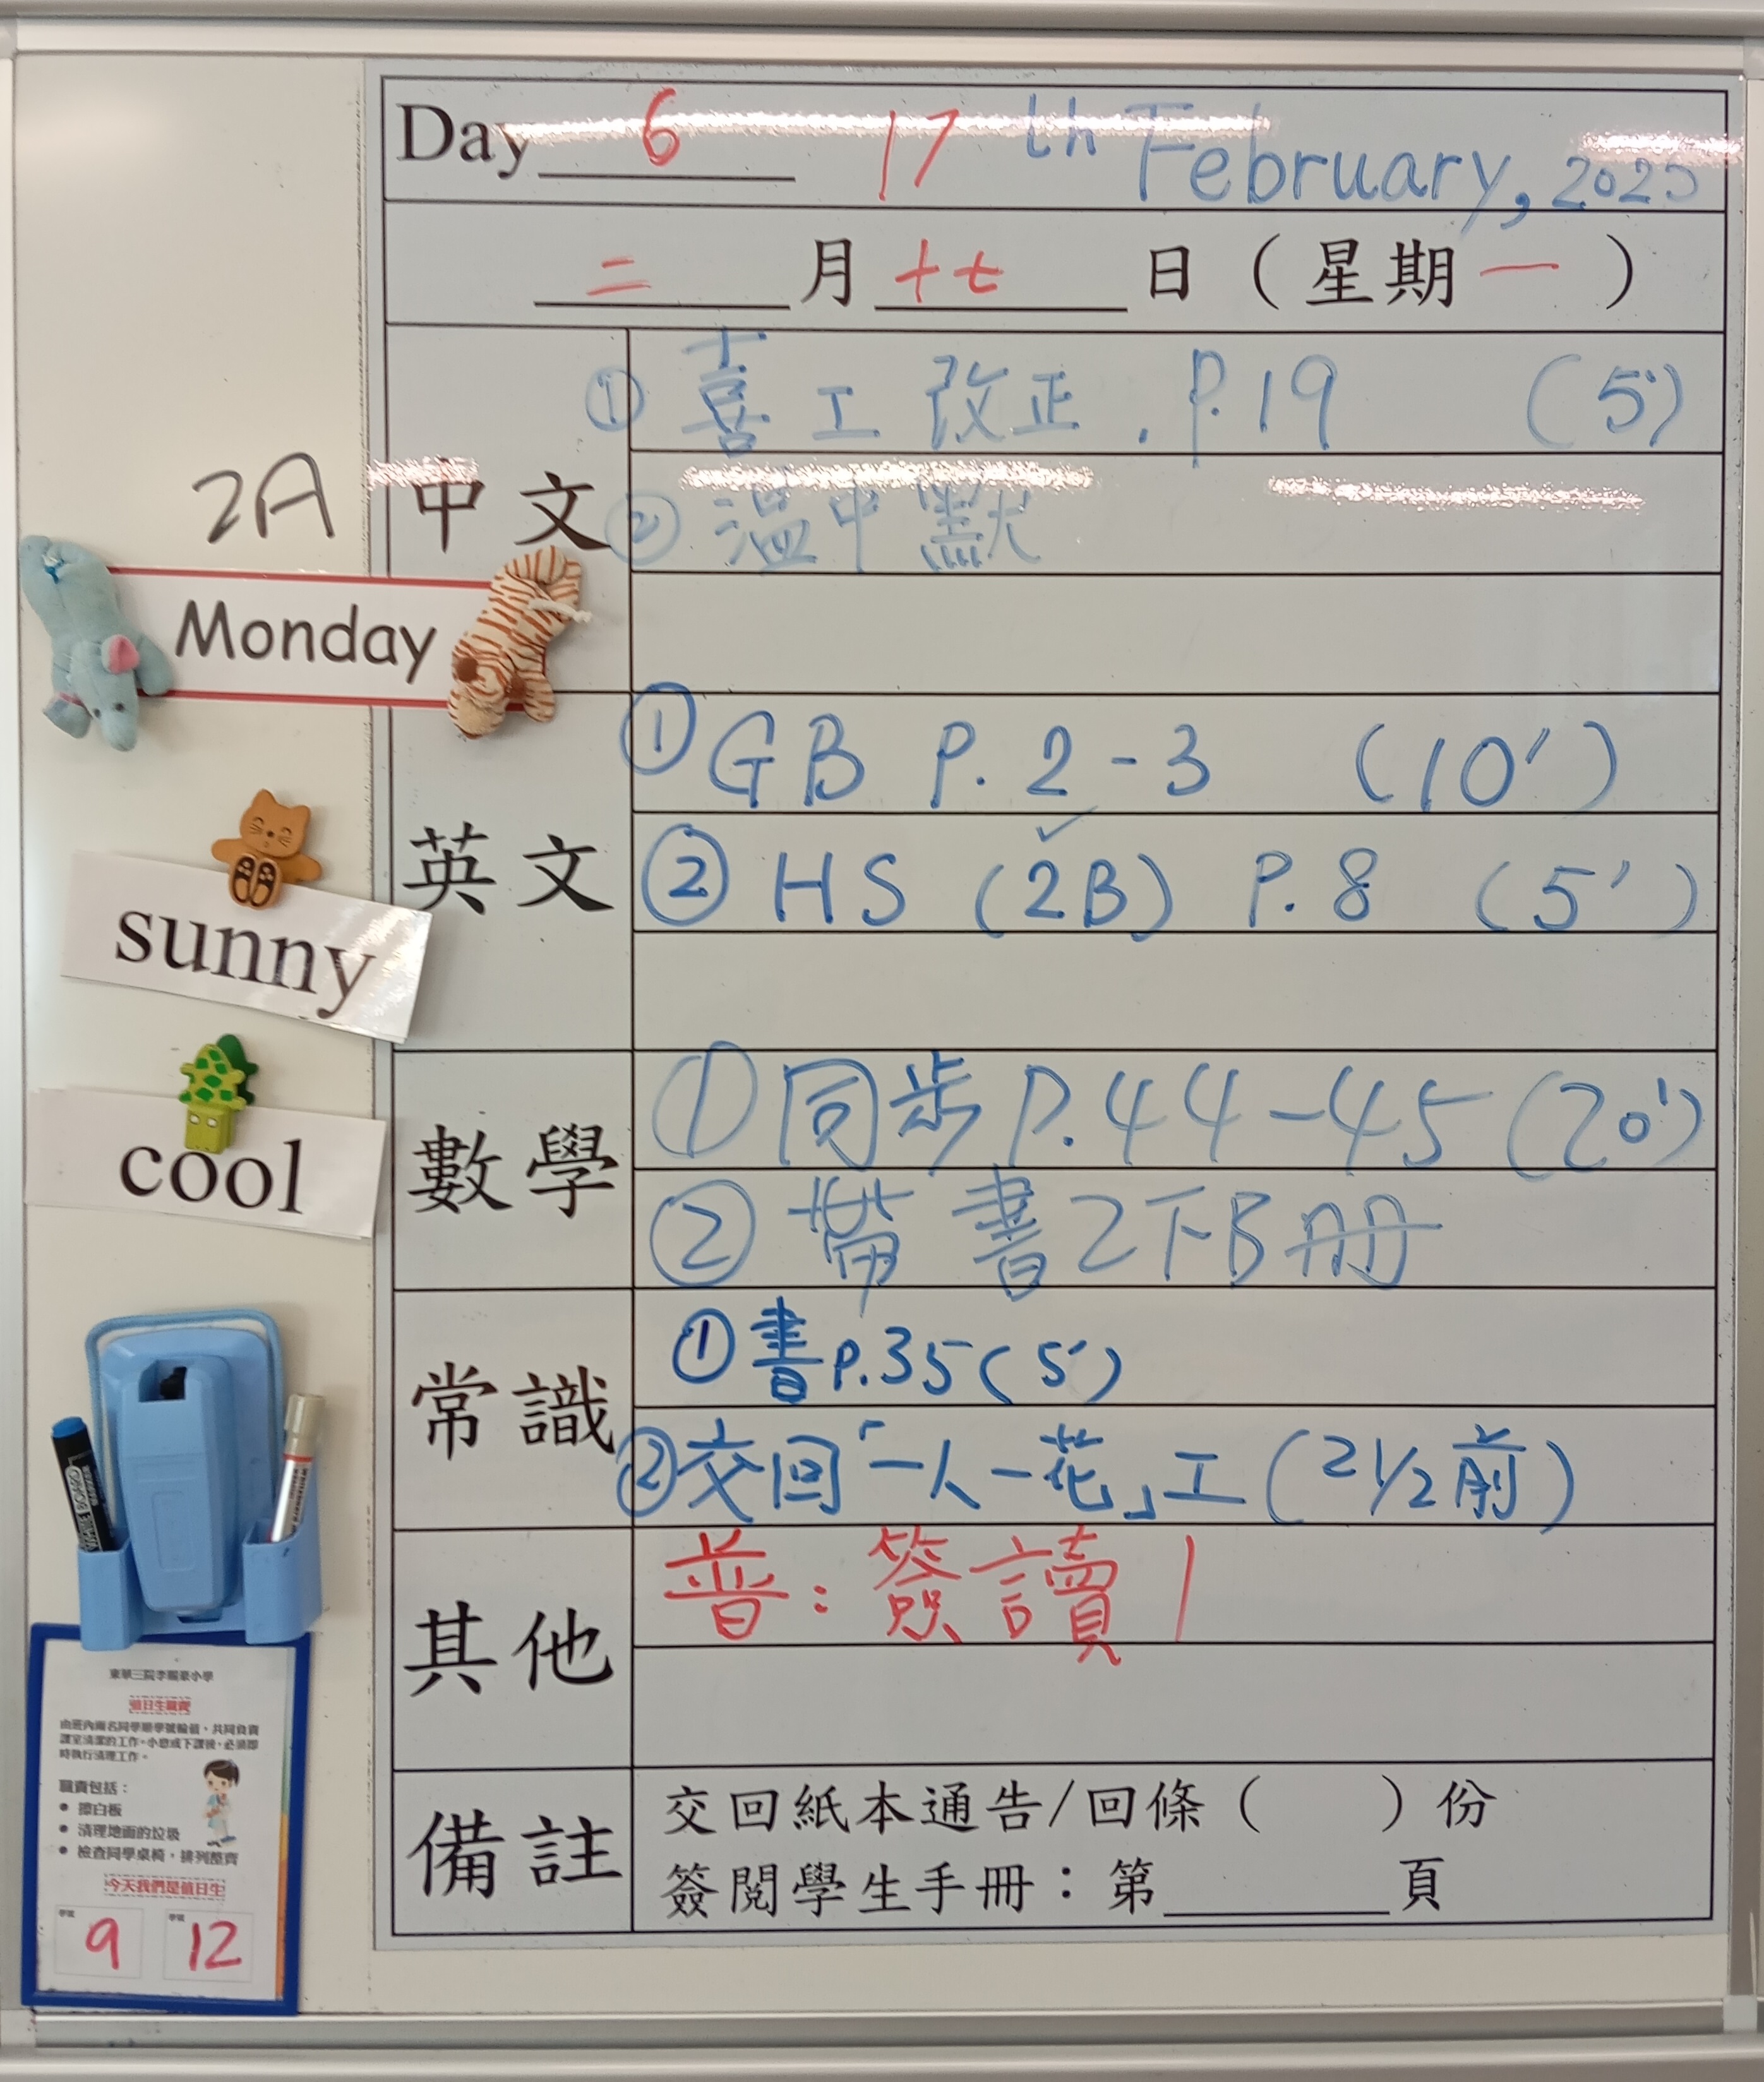 Day 6 17th February, 2025
二月十七日（星期一）
2A
Monday
sunny
cool
中文
① 喜工改正. P.19 (5')
② 溫中默
英文
① GB P. 2-3 (10')
② HS (2B) P. 8 (5')
數學
① 同步 P.44-45 (20')
② 帶書2下B冊
常識
① 書P.35 (5')
② 交回「一人一花」工 (21/2前)
其他
普：簽讀1
備註
交回紙本通告/回條（　　）份
簽閱學生手冊：第______頁
值日生職責
由班內兩名同學順學號輪值，共同負責
課室清潔的工作。小息或下課後，必須即
時執行清理工作。
職責包括：
● 擦白板
● 清理地面的垃圾
● 檢查同學桌椅，排列整齊
今天我們是值日生
學號 學號
9 12